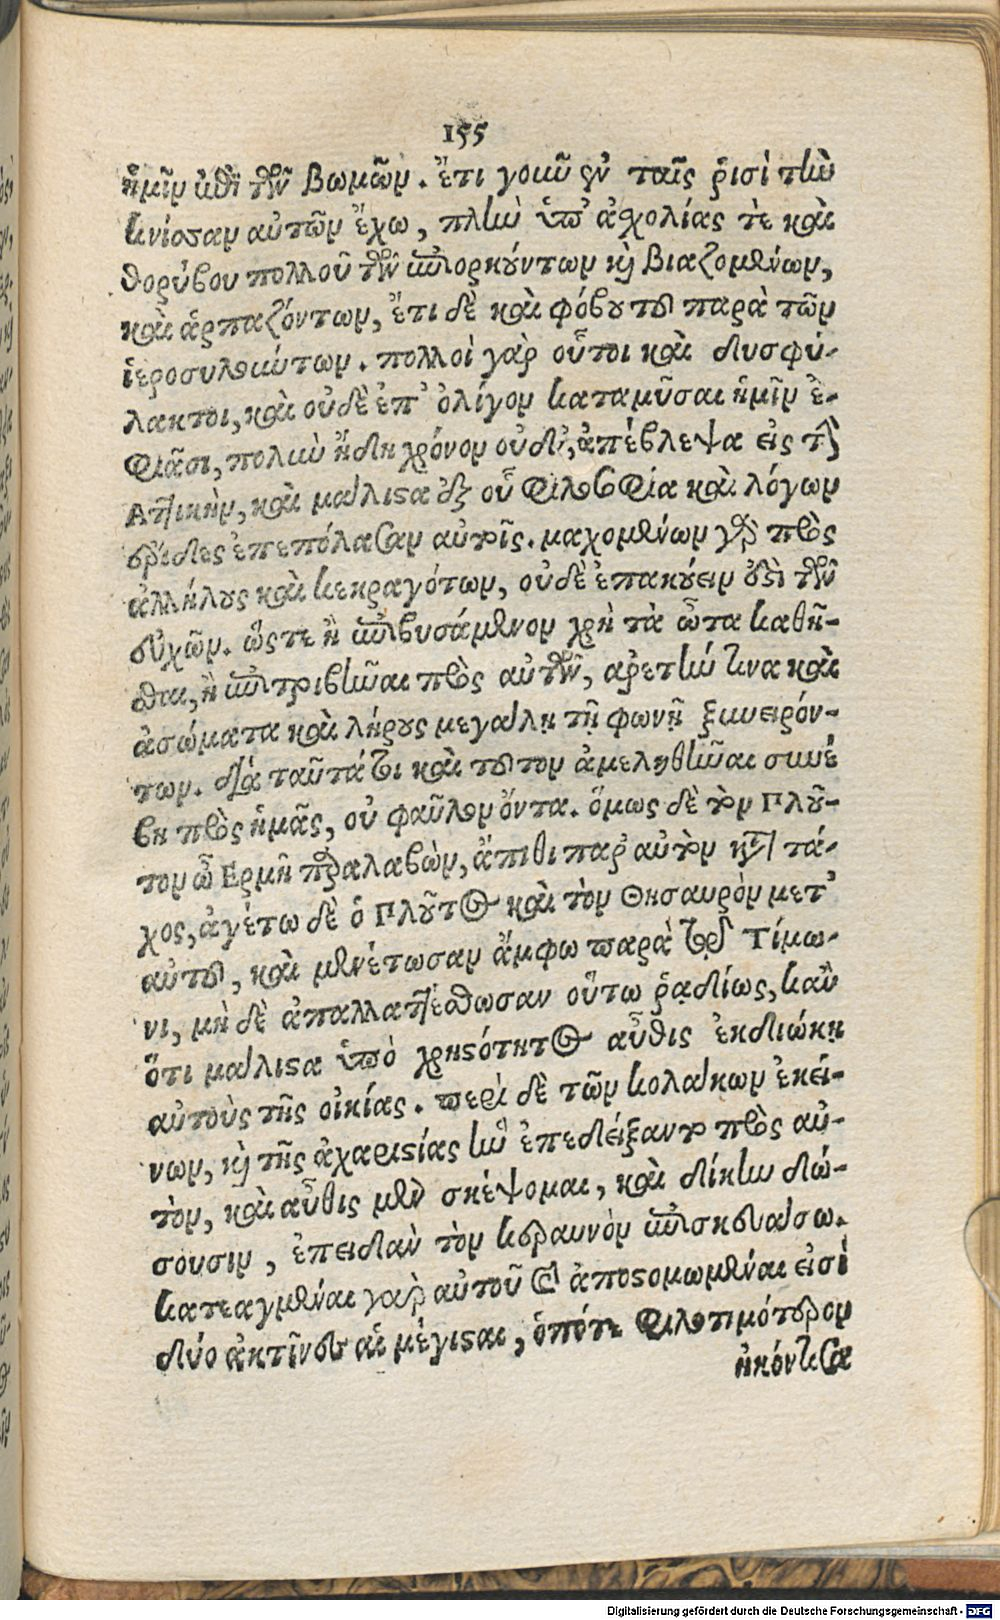 155
ἡμῖν ἐπὶ τῶν βωμῶν. ἔτι γοῦν ἐν ταῖς ῥισὶ τὴν
κνίσσαν αὐτῶν ἔχω, πλὴν ὑπ' ἀσχολίας τὲ καὶ
θορύβου πολλοῦ τῶν ἐπιορκούντων κὶ βιαζομένων,
καὶ ἁρπαζόντων, ἔτι δὲ καὶ φόβου τοῦ παρὰ τῶν
ἱεροσυλούντων. πολλοὶ γὰρ οὗτοι καὶ δυσφύ-
λακτοι, καὶ οὐδὲ ἐπ' ὀλίγον καταμῦσαι ἡμῖν ἐ-
φιᾶσι, πολὺν ἤδη χρόνον οὐδ', ἀπέβλεψα εἰς τὴν
Ἀττικὴν, καὶ μάλιστα ἐξ οὗ φιλοσοφία καὶ λόγων
ἔριδες ἐπεπόλασαν αὐτοῖς. μαχομένων γὰρ πρὸς
ἀλλήλους καὶ κεκραγότων, οὐδὲ ἐπακούειν ἔστι τῶν
εὐχῶν. ὥστε ἢ ἐπιβυσάμενον χρὴ τὰ ὦτα καθῆ-
σθαι, ἢ ἐπιτριβῆναι πρὸς αὐτῶν, ἀρετήν τινα καὶ
ἀσώματα καὶ λήρους μεγάλῃ τῇ φωνῇ ξυνειρόν-
των. διὰ ταῦτά τι καὶ τοῦτον ἀμεληθῆναι συνέ
βη πρὸς ἡμᾶς, οὐ φαῦλον ὄντα. ὅμως δὲ τὸν Πλοῦ-
τον ὦ Ερμῆ παραλαβὼν, ἄπιθι παρ' αὐτὸν κατὰ τά-
χος, ἀγέτω δὲ ὁ Πλοῦτος καὶ τὸν Θησαυρὸν μετ'
αὐτοῦ, καὶ μενέτωσαν ἄμφω παρὰ τῷ Τίμω-
νι, μὴ δὲ ἀπαλλαττέσθωσαν οὕτω ῥᾳδίως, κἂν
ὅτι μάλιστα ὑπὸ χρηστότητος αὖθις ἐκδιώκῃ
αὐτοὺς τῆς οἰκίας. περὶ δὲ τῶν κολάκων ἐκεί-
νων, κὶ τῆς ἀχαριστίας ἣν ἐπεδείξαντο πρὸς αὐ-
τὸν, καὶ αὖθις μὲν σκέψομαι, καὶ δίκην δώ-
σουσιν, ἐπειδὰν τὸν κεραυνὸν ἐπισκευάσω.
κατεαγμέναι γὰρ αὐτοῦ καὶ ἀποστομωμέναι εἰσὶ
δύο ἀκτῖνες αἱ μέγισται, ὁπότε φιλοτιμότερον
ἠκόντισα
Digitalisierung gefördert durch die Deutsche Forschungsgemeinschaft - DFG